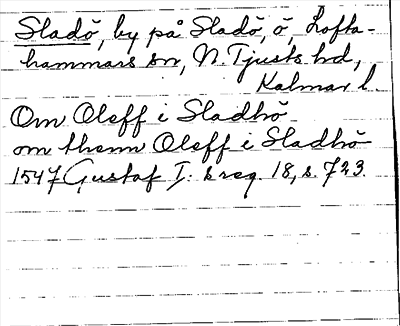 Sladö, by på Sladö, ö, Lofta-
hammars sn, N. Tjusts hd,
Kalmar l.
Om Oleff i Sladhö
om them Oleff i Sladhö
1547 Gustaf I: s reg. 18, s. 723.